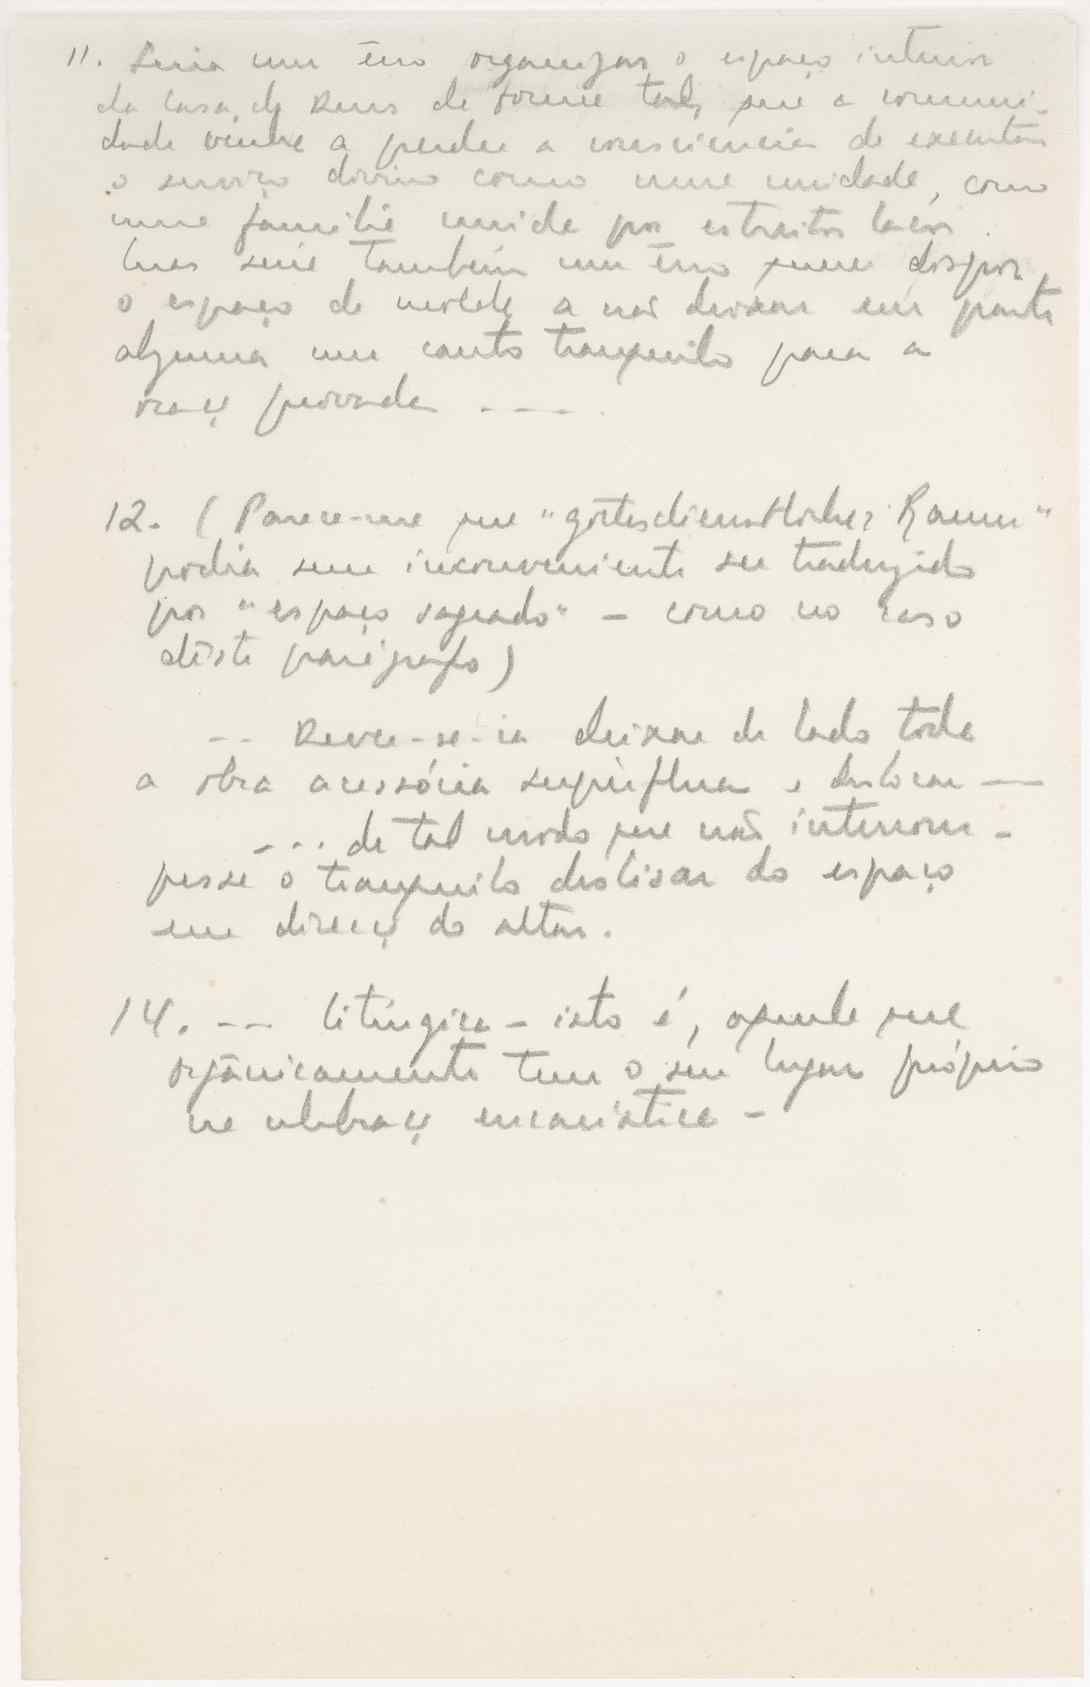 11. Seria um êrro organizar o espaço interior
da Casa de Deus de forma tal, que a comuni-
dade venha a perder a consciencia de executar
o serviço divino como uma unidade, como
uma familia unida por estreitos laços.
Mas seria também um êrro querer dispor
o espaço de molde a não deixar em parte
alguma um canto tranquilo para a
oraç privada ----.
12. (Parece-me que "gottesdienstlicher Raum"
podia sem inconveniente ser traduzido
por "espaço sagrado" - como no caso
dêste parágrafo)
-- Dever-se-ia deixar de lado toda
a obra acessória supérflua e deslocar —
... de tal modo que não interrom-
pesse o tranquilo deslisar do espaço
em direcç do altar.
14. -- litúrgica - isto é, aquele que
orgânicamente tem o seu lugar próprio
na celebraç eucaristica -